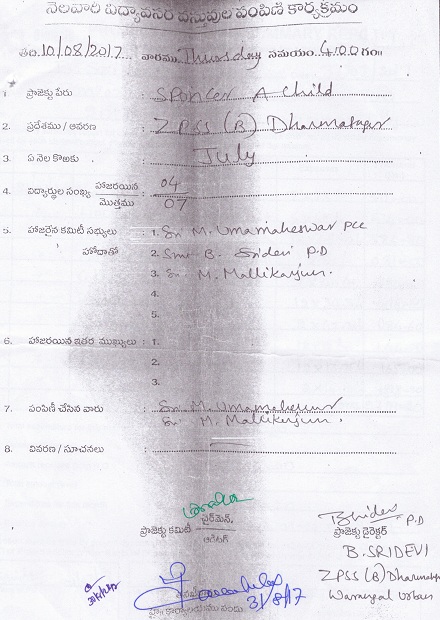 నెలవారీ విద్యావసర వస్తువుల పంపిణి కార్యక్రమం
తేది.10/08/2017... వారము Thursday సమయం 4.00 గం॥
1. ప్రాజెక్టు పేరు : SPoncer A Child
2. ప్రదేశము / ఆవరణ : ZPSS (B) Dharmatapur
3. ఏ నెల కొఱకు : July
4. విద్యార్థుల సంఖ్య హాజరయిన : 04
మొత్తము 07
5. హాజరైన కమిటీ సభ్యులు : 1. Sri M. Umamaheswar PCC
హోదాతో 2. Smt B. Sridevi P.D
3. Sri M. Mallikarjun.
4.
5.
6. హాజరయిన ఇతర ముఖ్యులు : 1.
2.
3.
7. పంపిణీ చేసిన వారు : Sri M. Umamaheswar
Sri M. Mallikarjun.
8. వివరణ / సూచనలు :
ప్రాజెక్టు కమిటీ చైర్‌మెన్,
ఆడిటర్
BSridevi P.D
ప్రాజెక్టు డైరెక్టర్
B. SRIDEVI
ZPSS (B) Dharmatapur
Warangal Urban
31/8/17